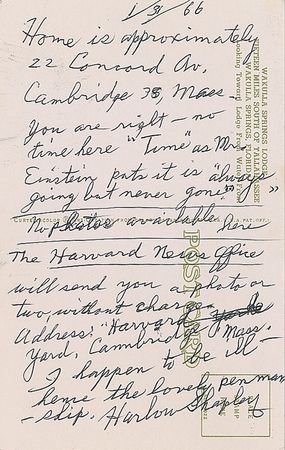 1/3/66
Home is approximately
22 Concord Av.
Cambridge 38, Mass.
You are right – no
time here "Time" as Mr
Einstein puts it is "always
going but never gone"."
No photos available here
The Harvard News Office
will send you a photo or
two, without charge.
Address: "Harvard Yard
Yard, Cambridge, Mass.
I happen to be ill –
hence the lovely penman
– ship. Harlow Shapley
WAKULLA SPRINGS LODGE
SIXTEEN MILES SOUTH OF TALLAHASSEE
WAKULLA SPRINGS, FLORIDA
Looking Toward Lodge From Water Front
POST CARD